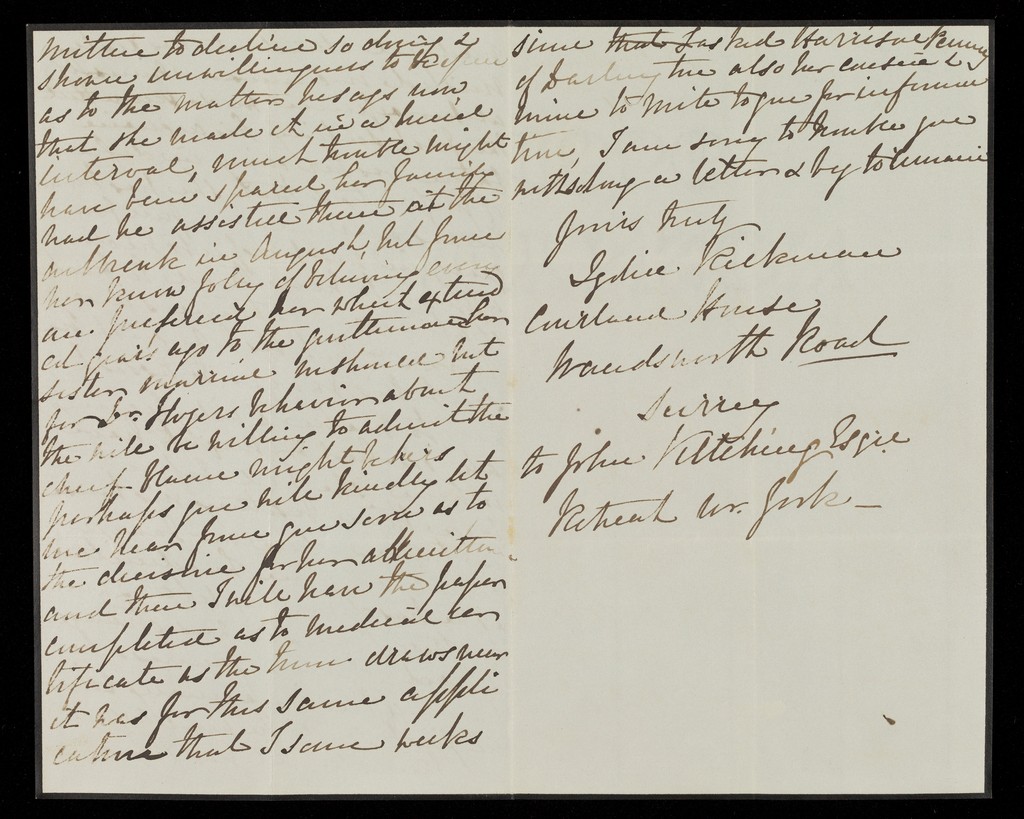 mittee to decline so doing &
shown unwillingness to
as to the matter he says now
that she made it in a lucid
interval, much trouble might
have been spared her family
had he assisted them at the
outbreak in August, but from
her known folly of believing every
one preferred her which extend
ed years ago to the gentleman her
sister married we should but
for Dr. behaviour about
the will be willing to admit the
chief blame might be hers
perhaps you will kindly let
me hear from you soon as to
the decision for her admittance
and then I will have the paper
completed as to medical cer
tificate as the time draws near
it was for this same appli
cation that I some weeks
since that I asked Harrison Penney
of Darlington also her cousin &
mine to write to you for informa
tion, I am sorry to trouble you
with so long a letter & beg to remain
yours truly
Lydia Kirkman
Courland House
Wandsworth Road
Surrey
to John Kitching Esqre
Retreat nr. York